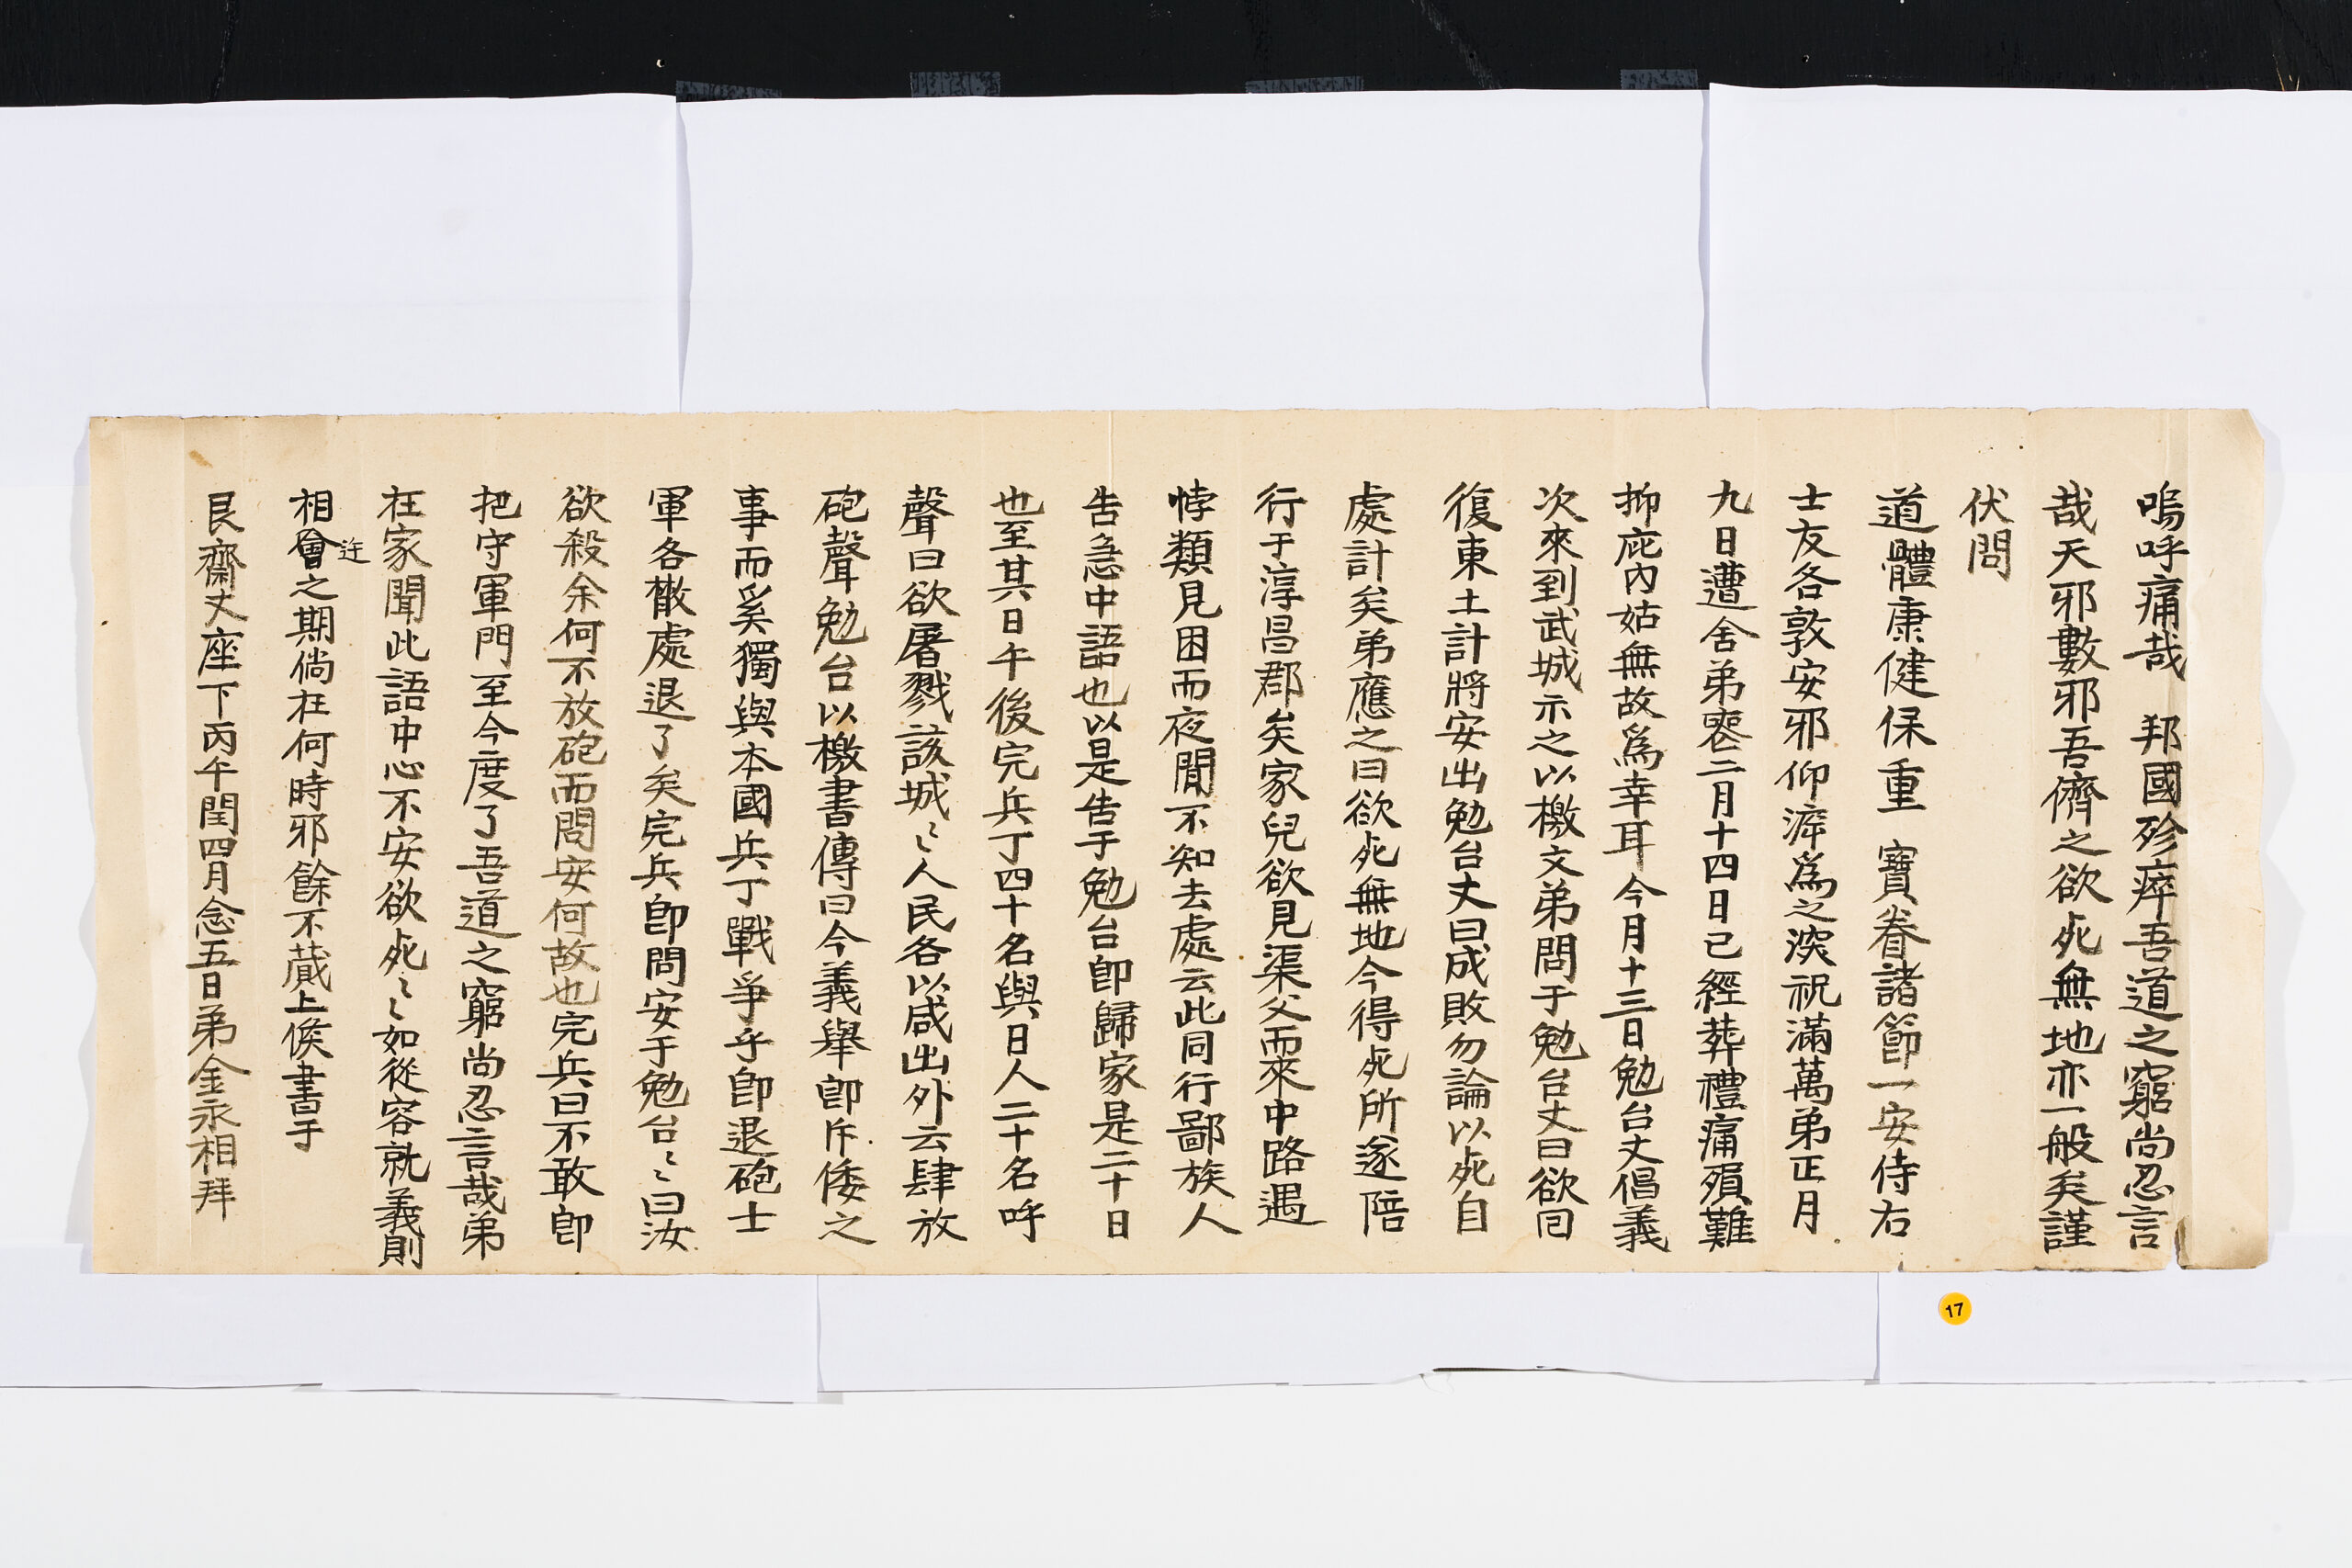 嗚呼痛哉 邦國殄瘁吾道之窮尚忍言
哉天邪數邪吾儕之欲死無地亦一般矣謹
伏問
道體康健保重 寶眷諸節一安侍右
士友各敦安邪仰溯爲之深祝滿萬弟正月
九日遭舍弟喪二月十四日已經葬禮痛殞難
抑庇內姑無故爲幸耳今月十三日勉台丈倡義
次來到武城示之以檄文弟問于勉台丈曰欲回
復東土計將安出勉台丈曰成敗勿論以死自
處計矣弟應之曰欲死無地今得死所遂陪
行于淳昌郡矣家兒欲見渠父而來中路遇
悖類見困而夜間不知去處云此同行鄙族人
告急中語也以是告于勉台卽歸家是二十日
也至其日午後完兵丁四十名與日人二十名呼
聲曰欲屠戮該城〻人民各以咸出外云肆放
砲聲勉台以檄書傳曰今義擧卽斥倭之
事而奚獨與本國兵丁戰爭乎卽退砲士
軍各散處退了矣完兵卽問安于勉台〻曰汝
欲殺余何不放砲而問安何故也完兵曰不敢卽
把守軍門至今度了吾道之窮尚忍言哉弟
在家聞此語中心不安欲死〻如從容就義則
相會之期倘在何時邪餘不蕆上候書于
艮齋丈座下丙午閏四月念五日弟金永相拜
17